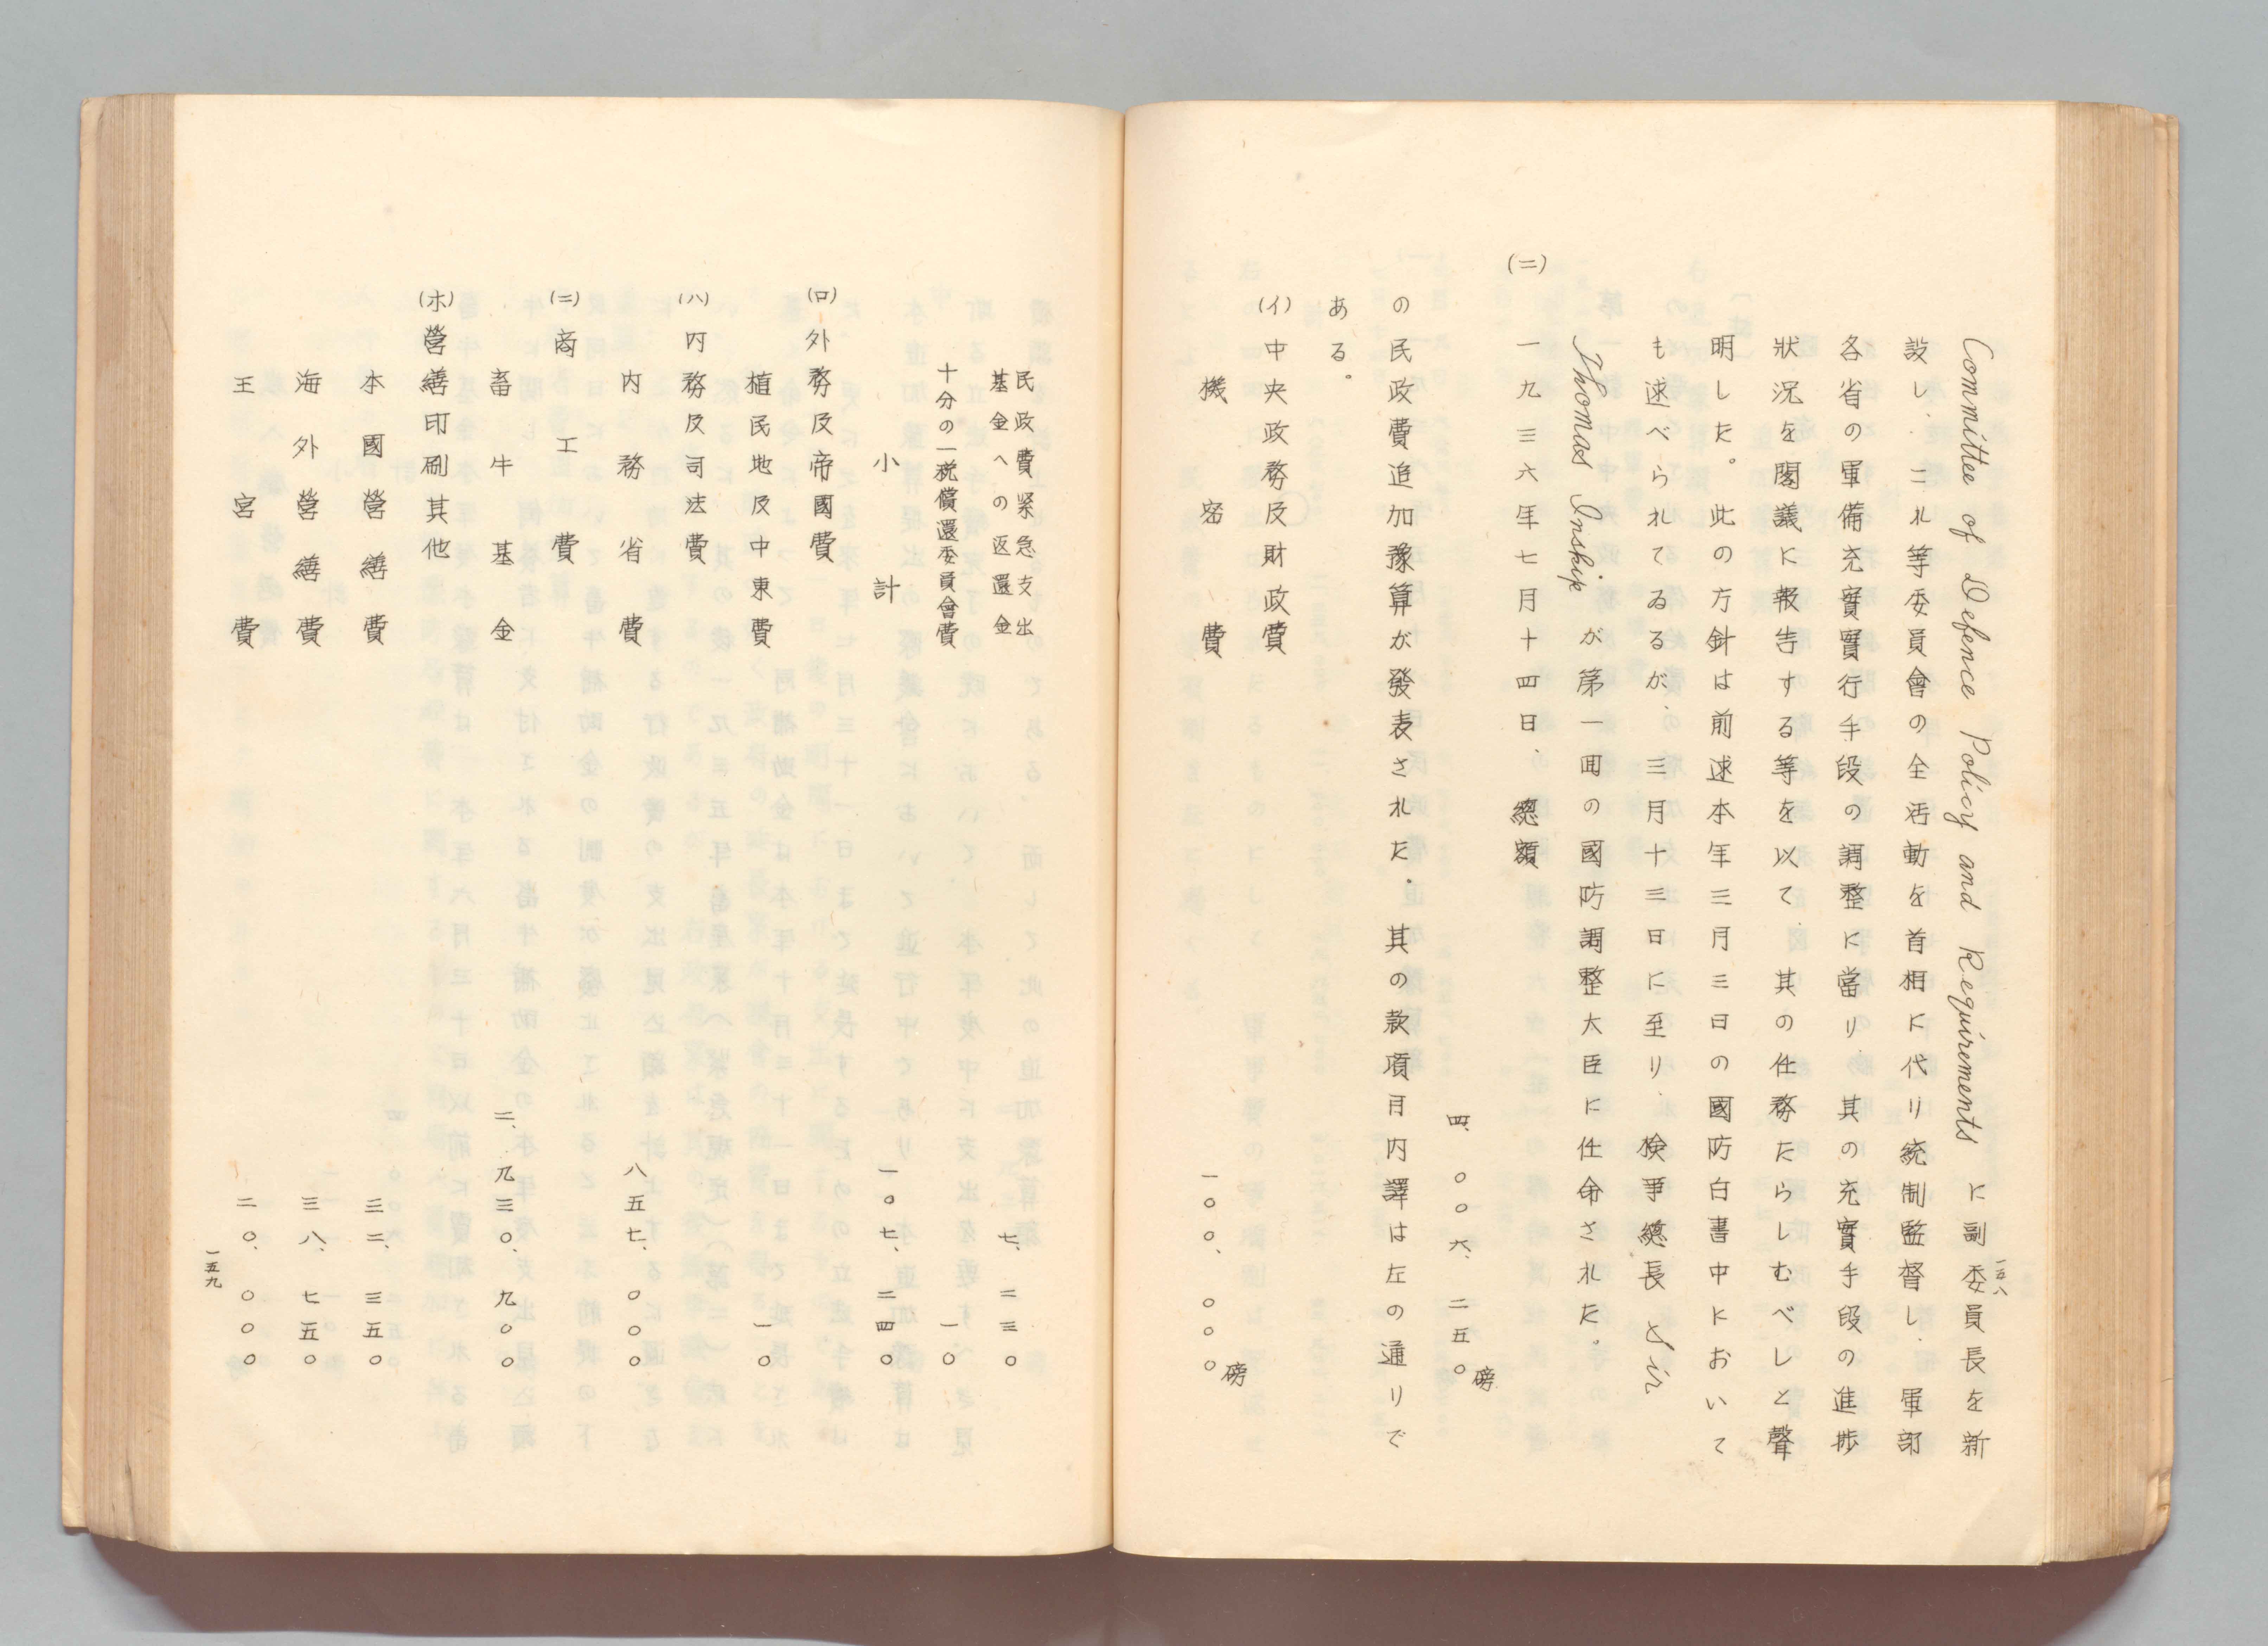 一五八
Committee of Defence Policy and Requirements に副委員長を新
設し、これ等委員會の全活動を首相に代り統制監督し、軍部
各省の軍備充實實行手段の調整に當り、其の充實手段の進捗
狀況を閣議に報告する等を以て、其の任務たらしむべしと聲
明した。此の方針は前述本年三月三日の國防白書中において
も述べられてゐるが、三月十三日に至り、檢事總長 Sir
Thomas Inskip が第一囬の國防調整大臣に任命された。
(二) 一九三六年七月十四日、總額 四、〇〇六、二五〇磅
の民政費追加豫算が發表された。其の款項目内譯は左の通りで
ある。
(イ) 中央政務及財政費
機密費 一〇〇、〇〇〇磅
民政費緊急支出
基金への返還金 七、二三〇
十分の一税償還委員會費 一〇
小計 一〇七、二四〇
(ロ) 外務及帝國費
植民地及中東費 一〇
(ハ) 内務及司法費
内務省費 八五七、〇〇〇
(ニ) 商工費
畜牛基金 二、九三〇、九〇〇
(ホ) 營繕印刷其他
本國營繕費 三二、三五〇
海外營繕費 三八、七五〇
王宮費 二〇、〇〇〇
一五九